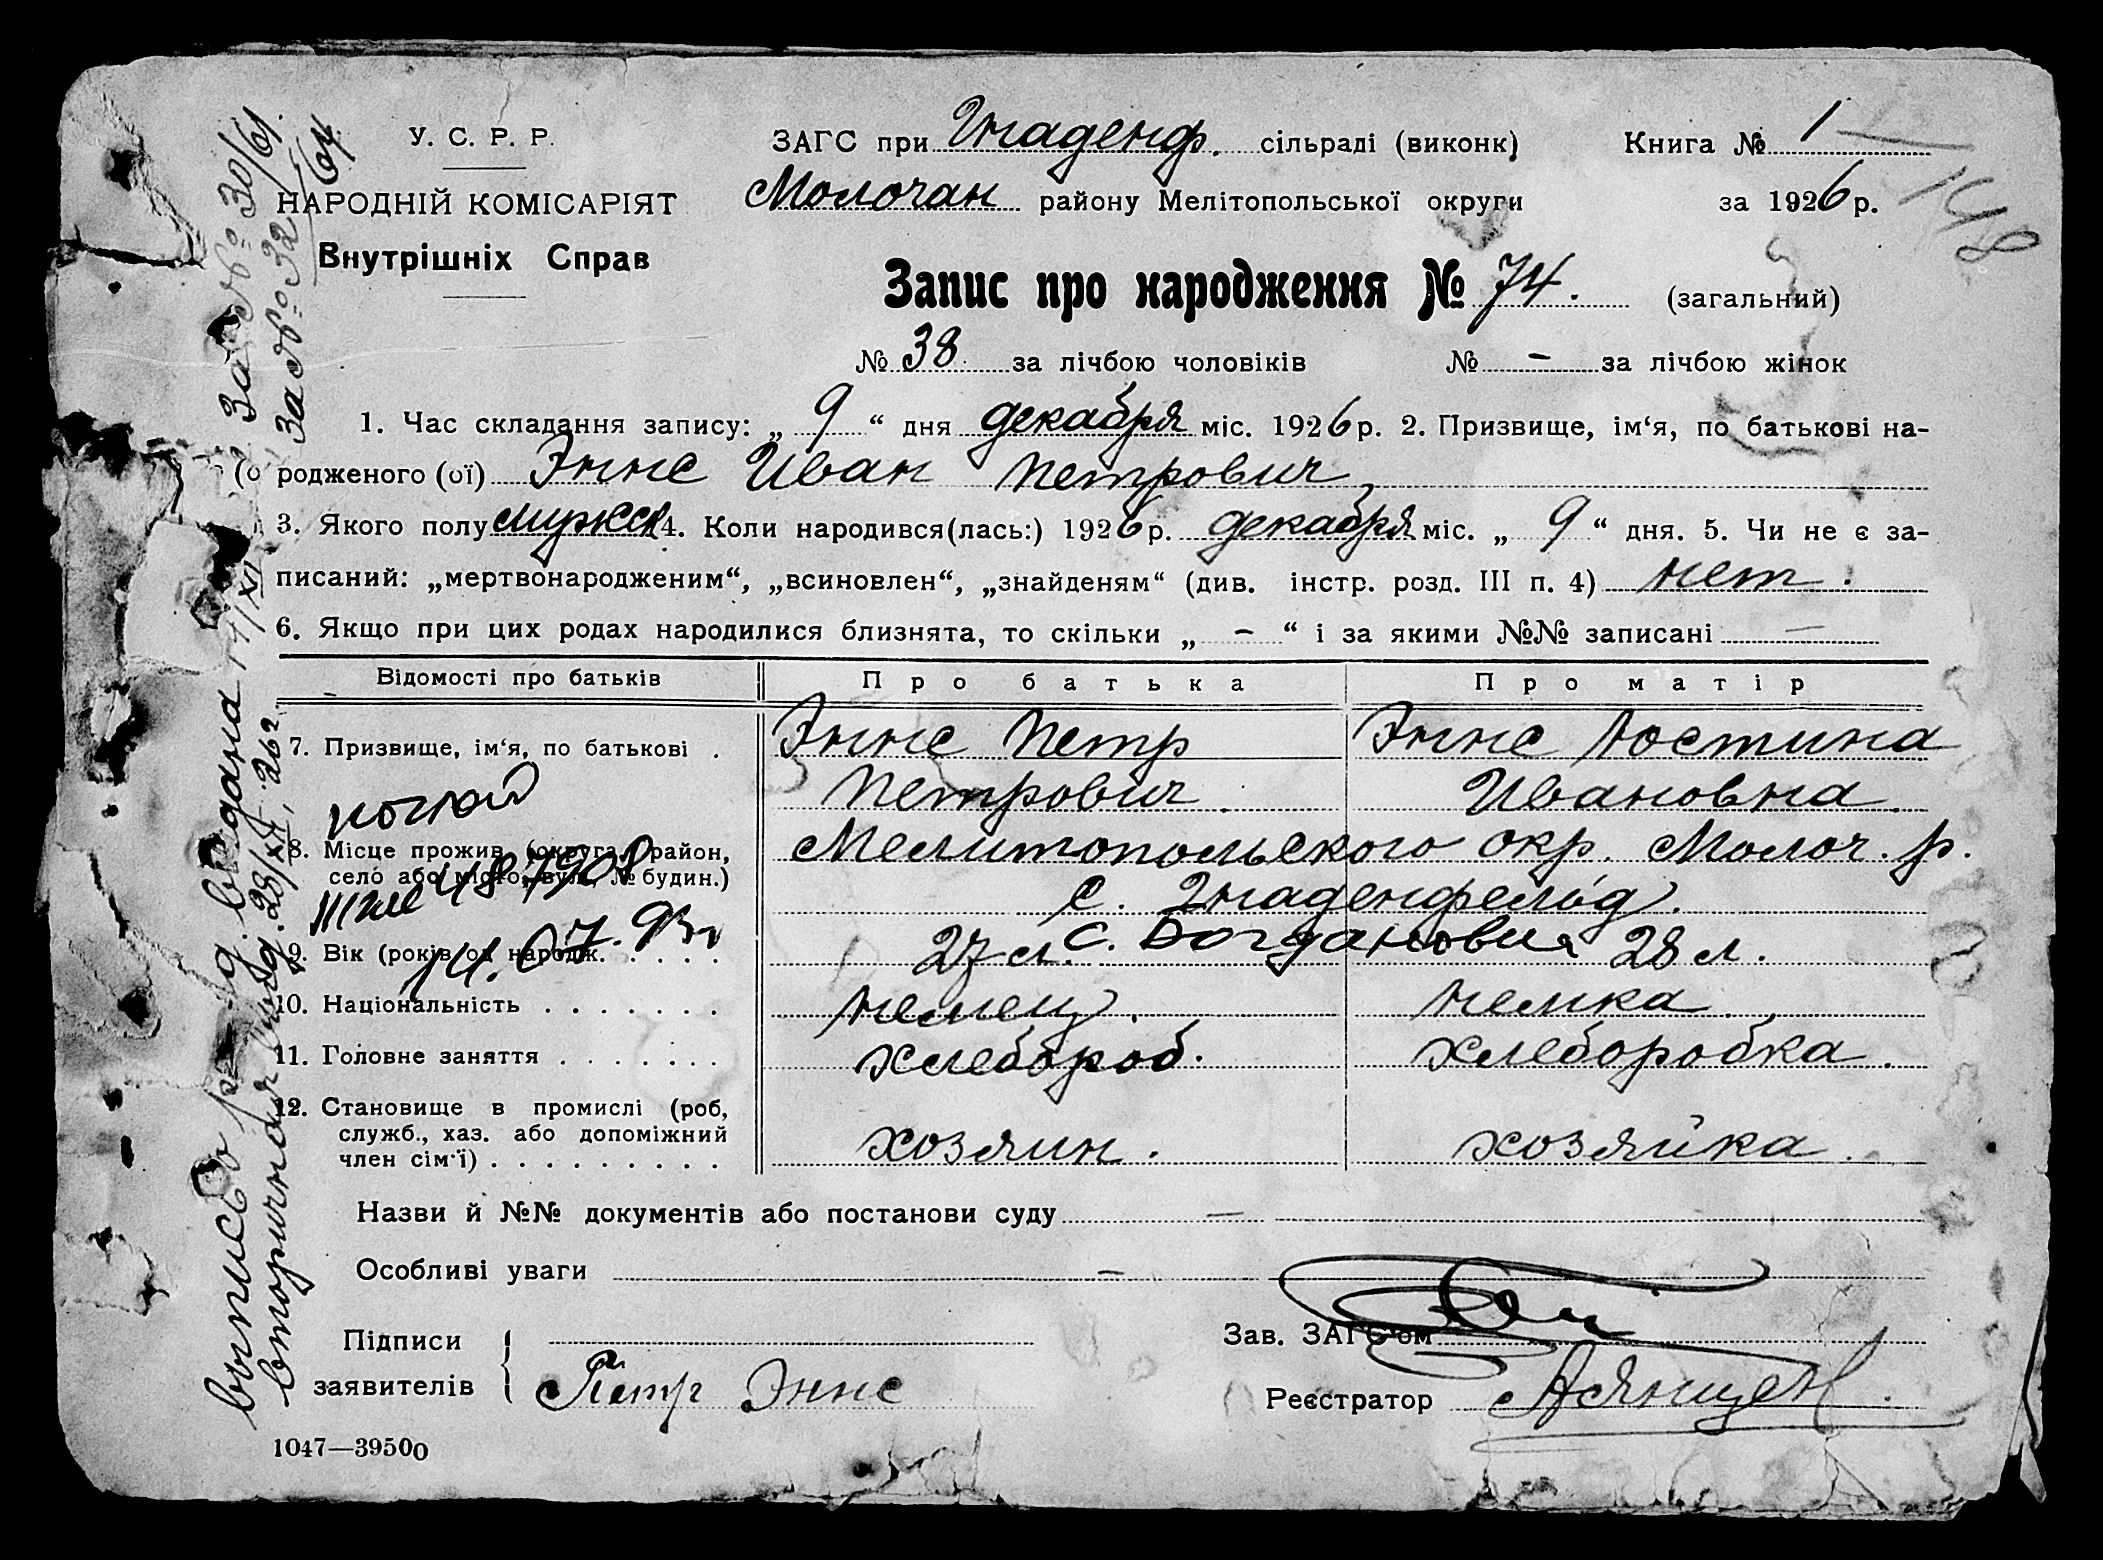 У. С. Р. Р.
НАРОДНІЙ КОМІСАРІЯТ
Внутрішніх Справ
ЗАГС при Гнаденф. сільраді (виконк)
Молочан району Мелітопольської округи
Книга № 1
за 1926 р.
148
Запис про народження № 74. (загальний)
№ 38 за лічбою чоловіків № - за лічбою жінок
1. Час складання запису: „ 9 “ дня декабря міс. 1926 р. 2. Призвище, ім‘я, по батькові на-
родженого (ої) Эннс Иван Петрович
3. Якого полу мужск 4. Коли народився(лась:) 1926 р. декабря міс. „ 9 “ дня. 5. Чи не є за-
писаний: „мертвонародженим“, „всиновлен“, „знайденям“ (див. інстр. розд. III п. 4) нет.
6. Якщо при цих родах народилися близнята, то скільки „ - “ і за якими №№ записані —
Відомості про батьків Про батька Про матір
7. Призвище, ім‘я, по батькові . Эннс Петр Эннс Юстина
Петрович. Ивановна.
8. Місце прожив. (округа, район, Мелитопольского окр. Молоч. р.
село або місто, вул., № будин.) с. Гнаденфельд.
с. Богдановка
9. Вік (років од народж. . . . . . 27 л. 28 л.
10. Національність . . . . . . . немец. немка.
11. Головне заняття . . . . . . . хлебороб. хлеборобка.
12. Становище в промислі (роб,
служб., хаз. або допоміжний
член сім‘ї) . . . . . . . . . хозяин. хозяйка.
14.07.93г
Назви й №№ документів або постанови суду —
Особливі уваги —
Підписи
заявителів
Петр Эннс
Зав. ЗАГС‘ом
Реєстратор
1047—39500
выпись выдана
вторичная выд. 28/XII. 262